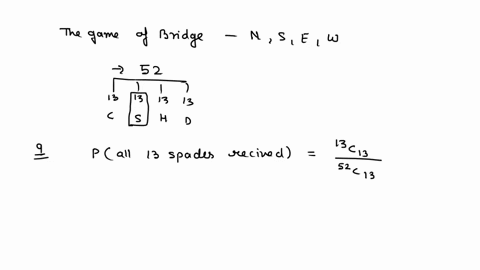 The game of Bridge – N, S, E, W
→ 52
13 13 13 13
C S H D
9 P(all 13 spades recived) = ¹³C₁₃ / ⁵²C₁₃